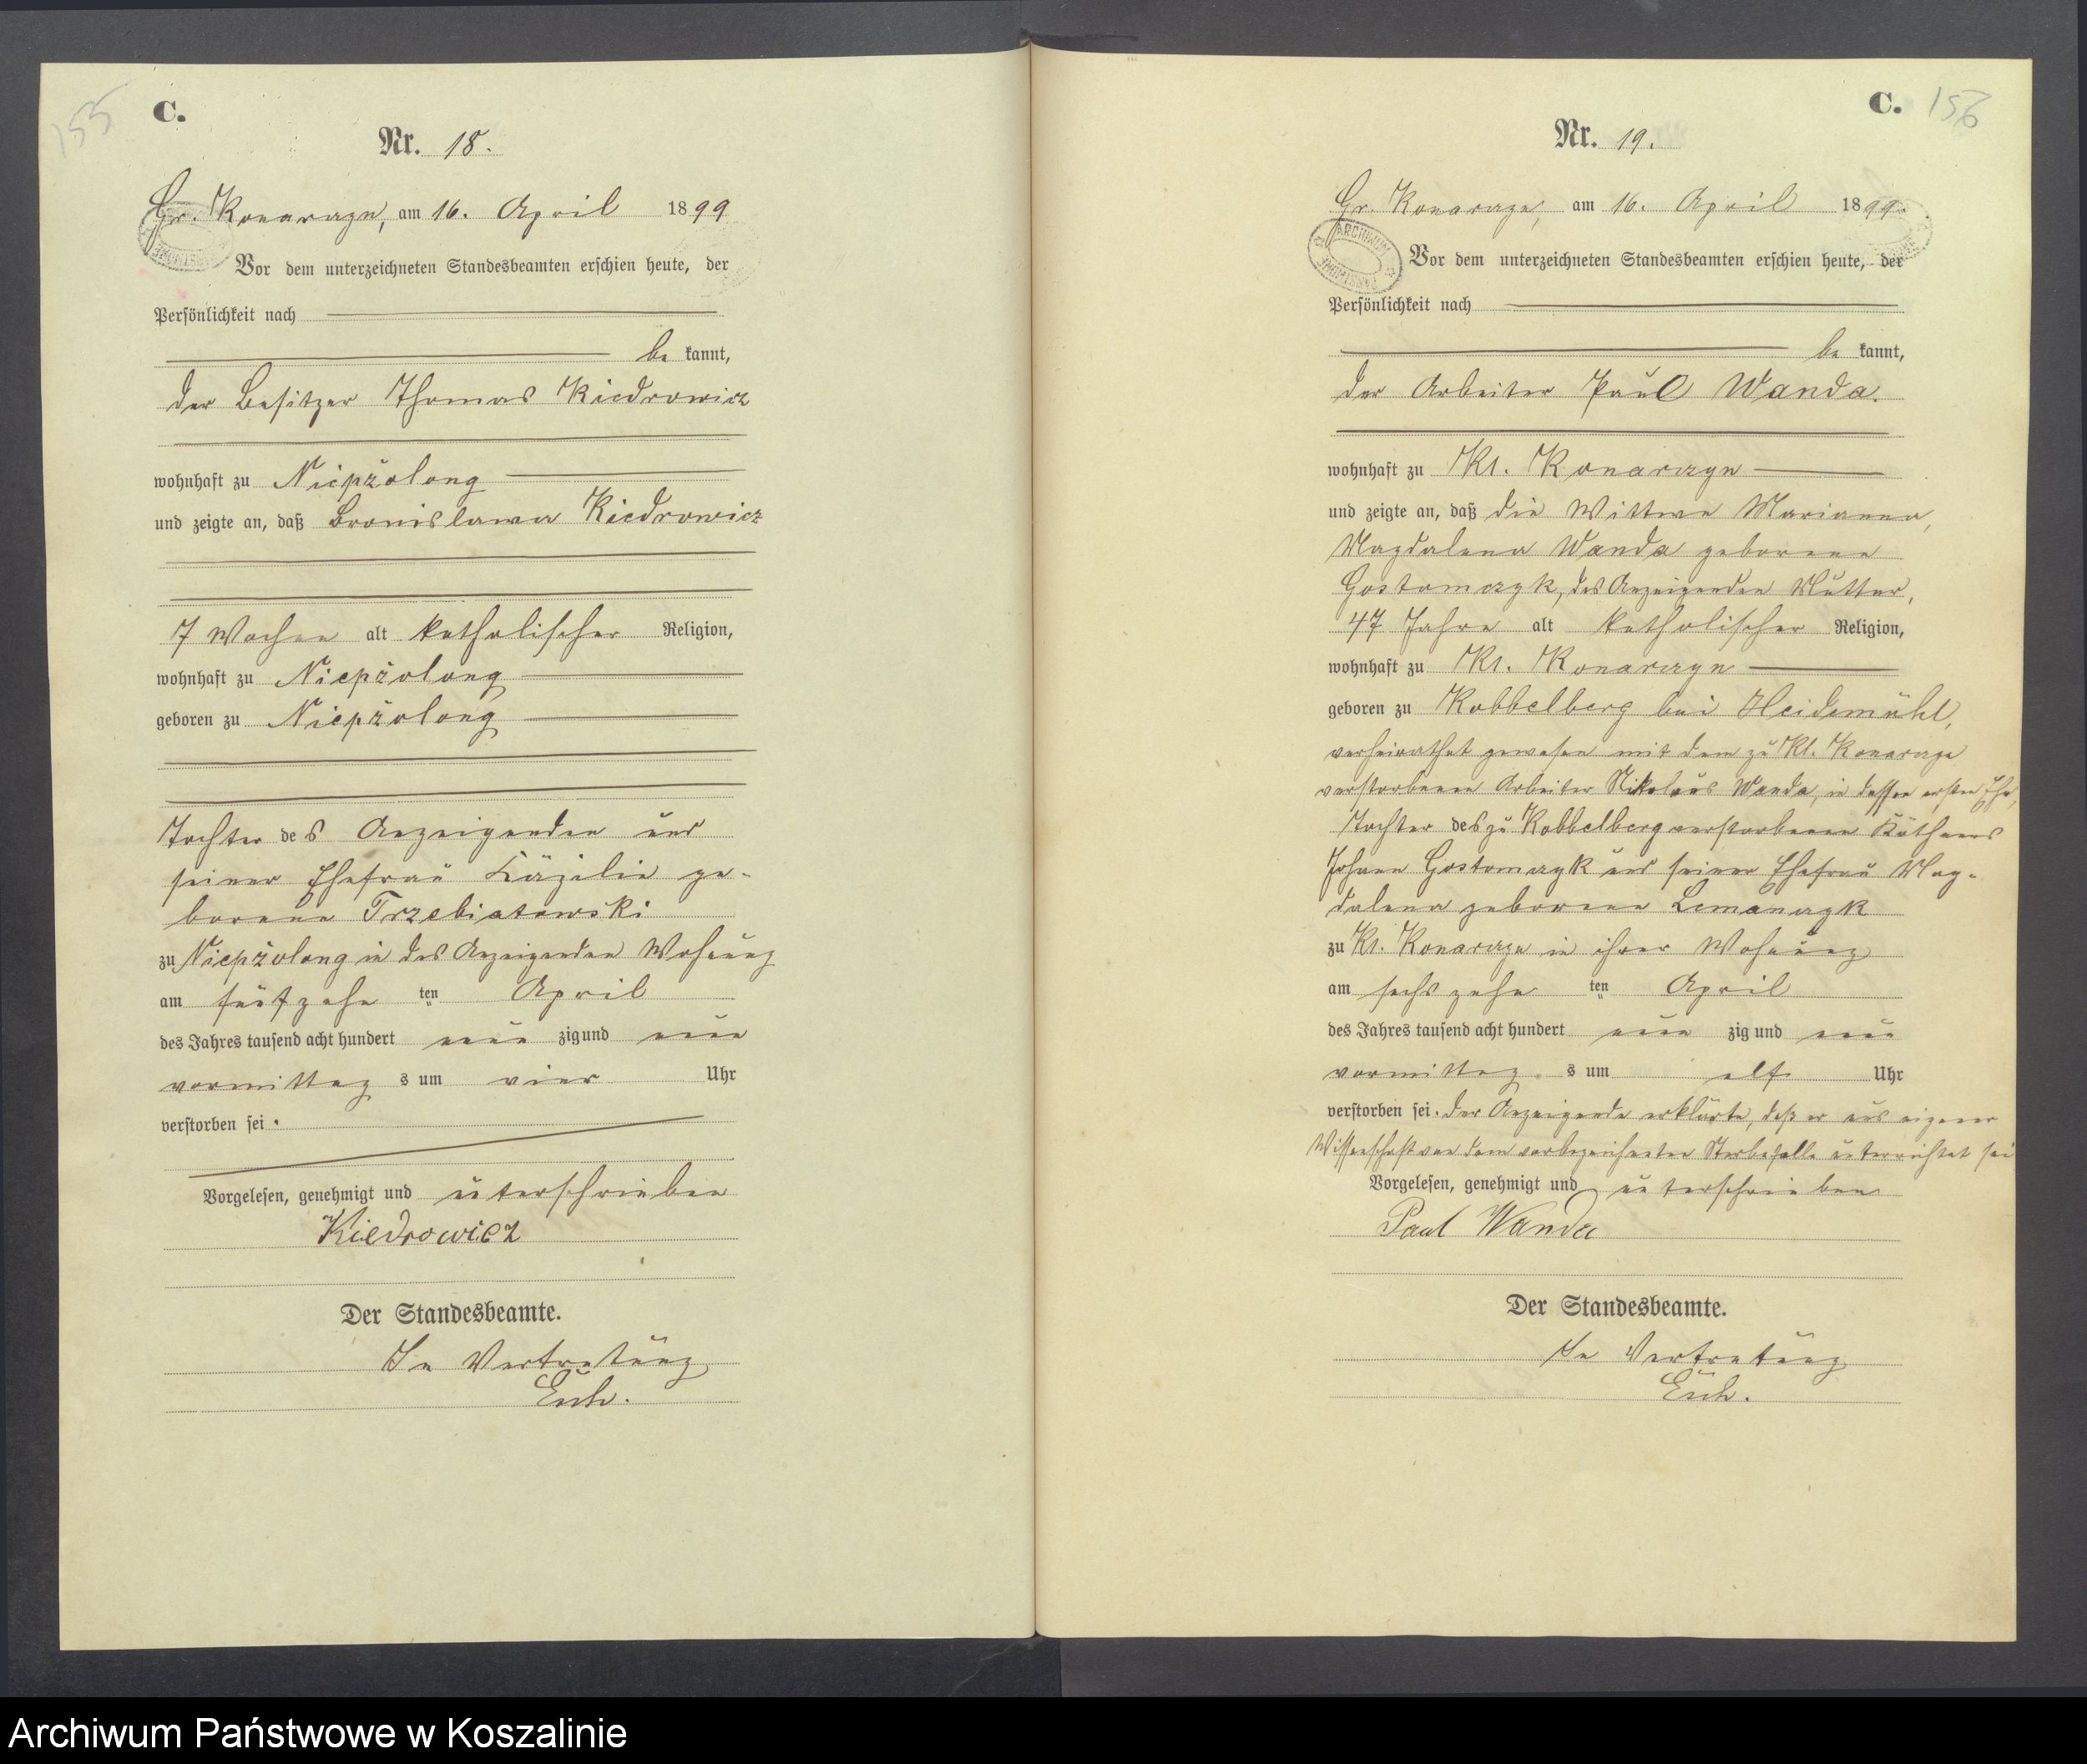 155
C.
Nr. 18.
Gr. Konarczyn, am 16. April 1899
Vor dem unterzeichneten Standesbeamten erschien heute, der
Persönlichkeit nach
be kannt,
der Besitzer Thomas Kiedrowicz
wohnhaft zu Niepżolong
und zeigte an, daß Bronislawa Kiedrowicz
7 Wochen alt katholischer Religion,
wohnhaft zu Niepżolong
geboren zu Niepżolong
Tochter des Anzeigenden und
seiner Ehefrau Käzilie ge-
borene Trzebiatowski
zu Niepżolong in des Anzeigenden Wohnung
am fünfzehn ten April
des Jahres tausend acht hundert neun zig und neun
vormittag s um vier Uhr
verstorben sei.
Vorgelesen, genehmigt und unterschrieben
Kiedrowicz
Der Standesbeamte.
In Vertretung
156
C.
Nr. 19.
Gr. Konarczyn, am 16. April 1899.
ARCHIWUM
Vor dem unterzeichneten Standesbeamten erschien heute, der
Persönlichkeit nach
be kannt,
der Arbeiter Paul Wanda.
wohnhaft zu Kl. Konarczyn
und zeigte an, daß die Wittwe Marianna,
Magdalena Wanda geborene
Gostomczyk, des Anzeigenden Mutter,
47 Jahre alt katholischer Religion,
wohnhaft zu Kl. Konarczyn
geboren zu Kobbelberg bei Heidemühl,
verheirathet gewesen mit dem zu Kl. Konarczyn
verstorbenen Arbeiter Nikolaus Wanda, in dessen erster Ehe,
Tochter des zu Kobbelberg verstorbenen Käthners
Johann Gostomczyk und seiner Ehefrau Mag-
dalena geborene Lemanczyk
zu Kl. Konarczyn in ihrer Wohnung
am sechszehn ten April
des Jahres tausend acht hundert neun zig und neun
vormittag s um elf Uhr
verstorben sei. Der Anzeigende erklärte, daß er aus eigener
Wissenschaft von dem vorbezeichneten Sterbefalle unterrichtet sei
Vorgelesen, genehmigt und unterschrieben
Paul Wanda
Der Standesbeamte.
In Vertretung
Archiwum Państwowe w Koszalinie